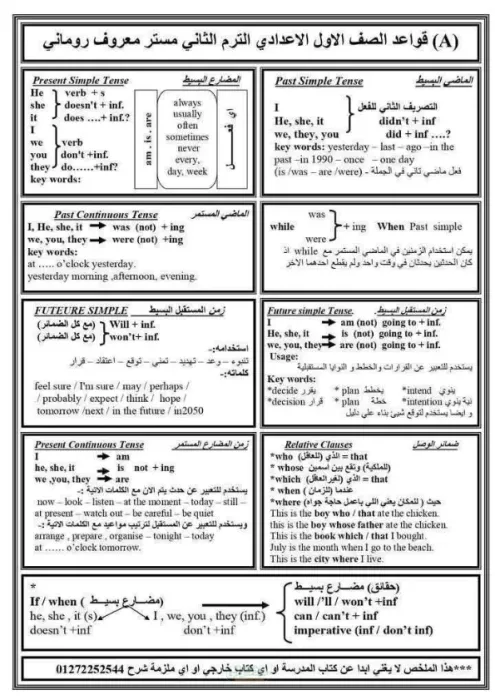 (A) قواعد الصف الاول الاعدادي الترم الثاني مستر معروف روماني
Present Simple Tense المضارع البسيط
He verb + s
she doesn't + inf.
it does ….+ inf.?
I
we verb
you don't +inf.
they do……+inf?
key words:
am . is . are
always
usually
often
sometimes
never
every,
day, week
Past Simple Tense الماضي البسيط
I التصريف الثاني للفعل
He, she, it didn't + inf
we, they, you did + inf ….?
key words: yesterday – last – ago –in the
past –in 1990 – once – one day
(is /was – are /were) - فعل ماضي تاني في الجملة
Past Continuous Tense الماضي المستمر
I, He, she, it was (not) + ing
we, you, they were (not) +ing
key words:
at ….. o'clock yesterday.
yesterday morning ,afternoon, evening.
was
while + ing When Past simple
were
يمكن استخدام الزمنين في الماضي المستمر مع while اذ
كان الحدثين يحدثان في وقت واحد ولم يقطع احدهما الاخر
FUTEURE SIMPLE زمن المستقبل البسيط
(مع كل الضمائر) Will + inf.
(مع كل الضمائر) won't+ inf.
استخدامه:-
تنبوء - وعد - تهديد - تمنى - توقع - اعتقاد - قرار
كلماته:-
feel sure / I'm sure / may / perhaps /
/ probably / expect / think / hope /
tomorrow /next / in the future / in2050
Future simple Tense. زمن المستقبل البسيط
I am (not) going to + inf.
He, she, it is (not) going to + inf.
we, you, they are (not) going to + inf.
Usage:
يستخدم للتعبير عن القرارات والخطط و النوايا المستقبلية
Key words:
*decide يقرر * plan يخطط *intend ينوي
*decision قرار * plan خطة *intention نية ينوي
و ايضا يستخدم لتوقع شيئ بناء علي دليل
Present Continuous Tense زمن المضارع المستمر
I am
he, she, it is not + ing
we ,you, they are
يستخدم للتعبير عن حدث يتم الان مع الكلمات الاتية :-
now – look – listen – at the moment – today – still –
at present – watch out – be careful – be quiet
ويستخدم للتعبير عن المستقبل لترتيب مواعيد مع الكلمات الاتية :-
arrange , prepare , organise – tonight – today
at …… o'clock tomorrow.
Relative Clauses ضمائر الوصل
*who الذي (للعاقل) = that
* whose (للملكية) وتقع بين اسمين
*which الذي (لغير العاقل) = that
* when عندما (للزمان)
*where حيث ( للمكان يعني اللي باعمل حاجة جواه)
This is the boy who / that ate the chicken.
this is the boy whose father ate the chicken.
This is the book which / that I bought.
July is the month when I go to the beach.
This is the city where I live.
*
If / when ( مضارع بسيط )
he, she , it (s) I , we, you , they (inf.)
doesn't +inf don't +inf
(حقائق) مضارع بسيط
will /'ll / won't +inf
can / can't + inf
imperative (inf / don't inf)
***هذا الملخص لا يغني ابدا عن كتاب المدرسة او اي كتاب خارجي او اي ملزمة شرح 01272252544